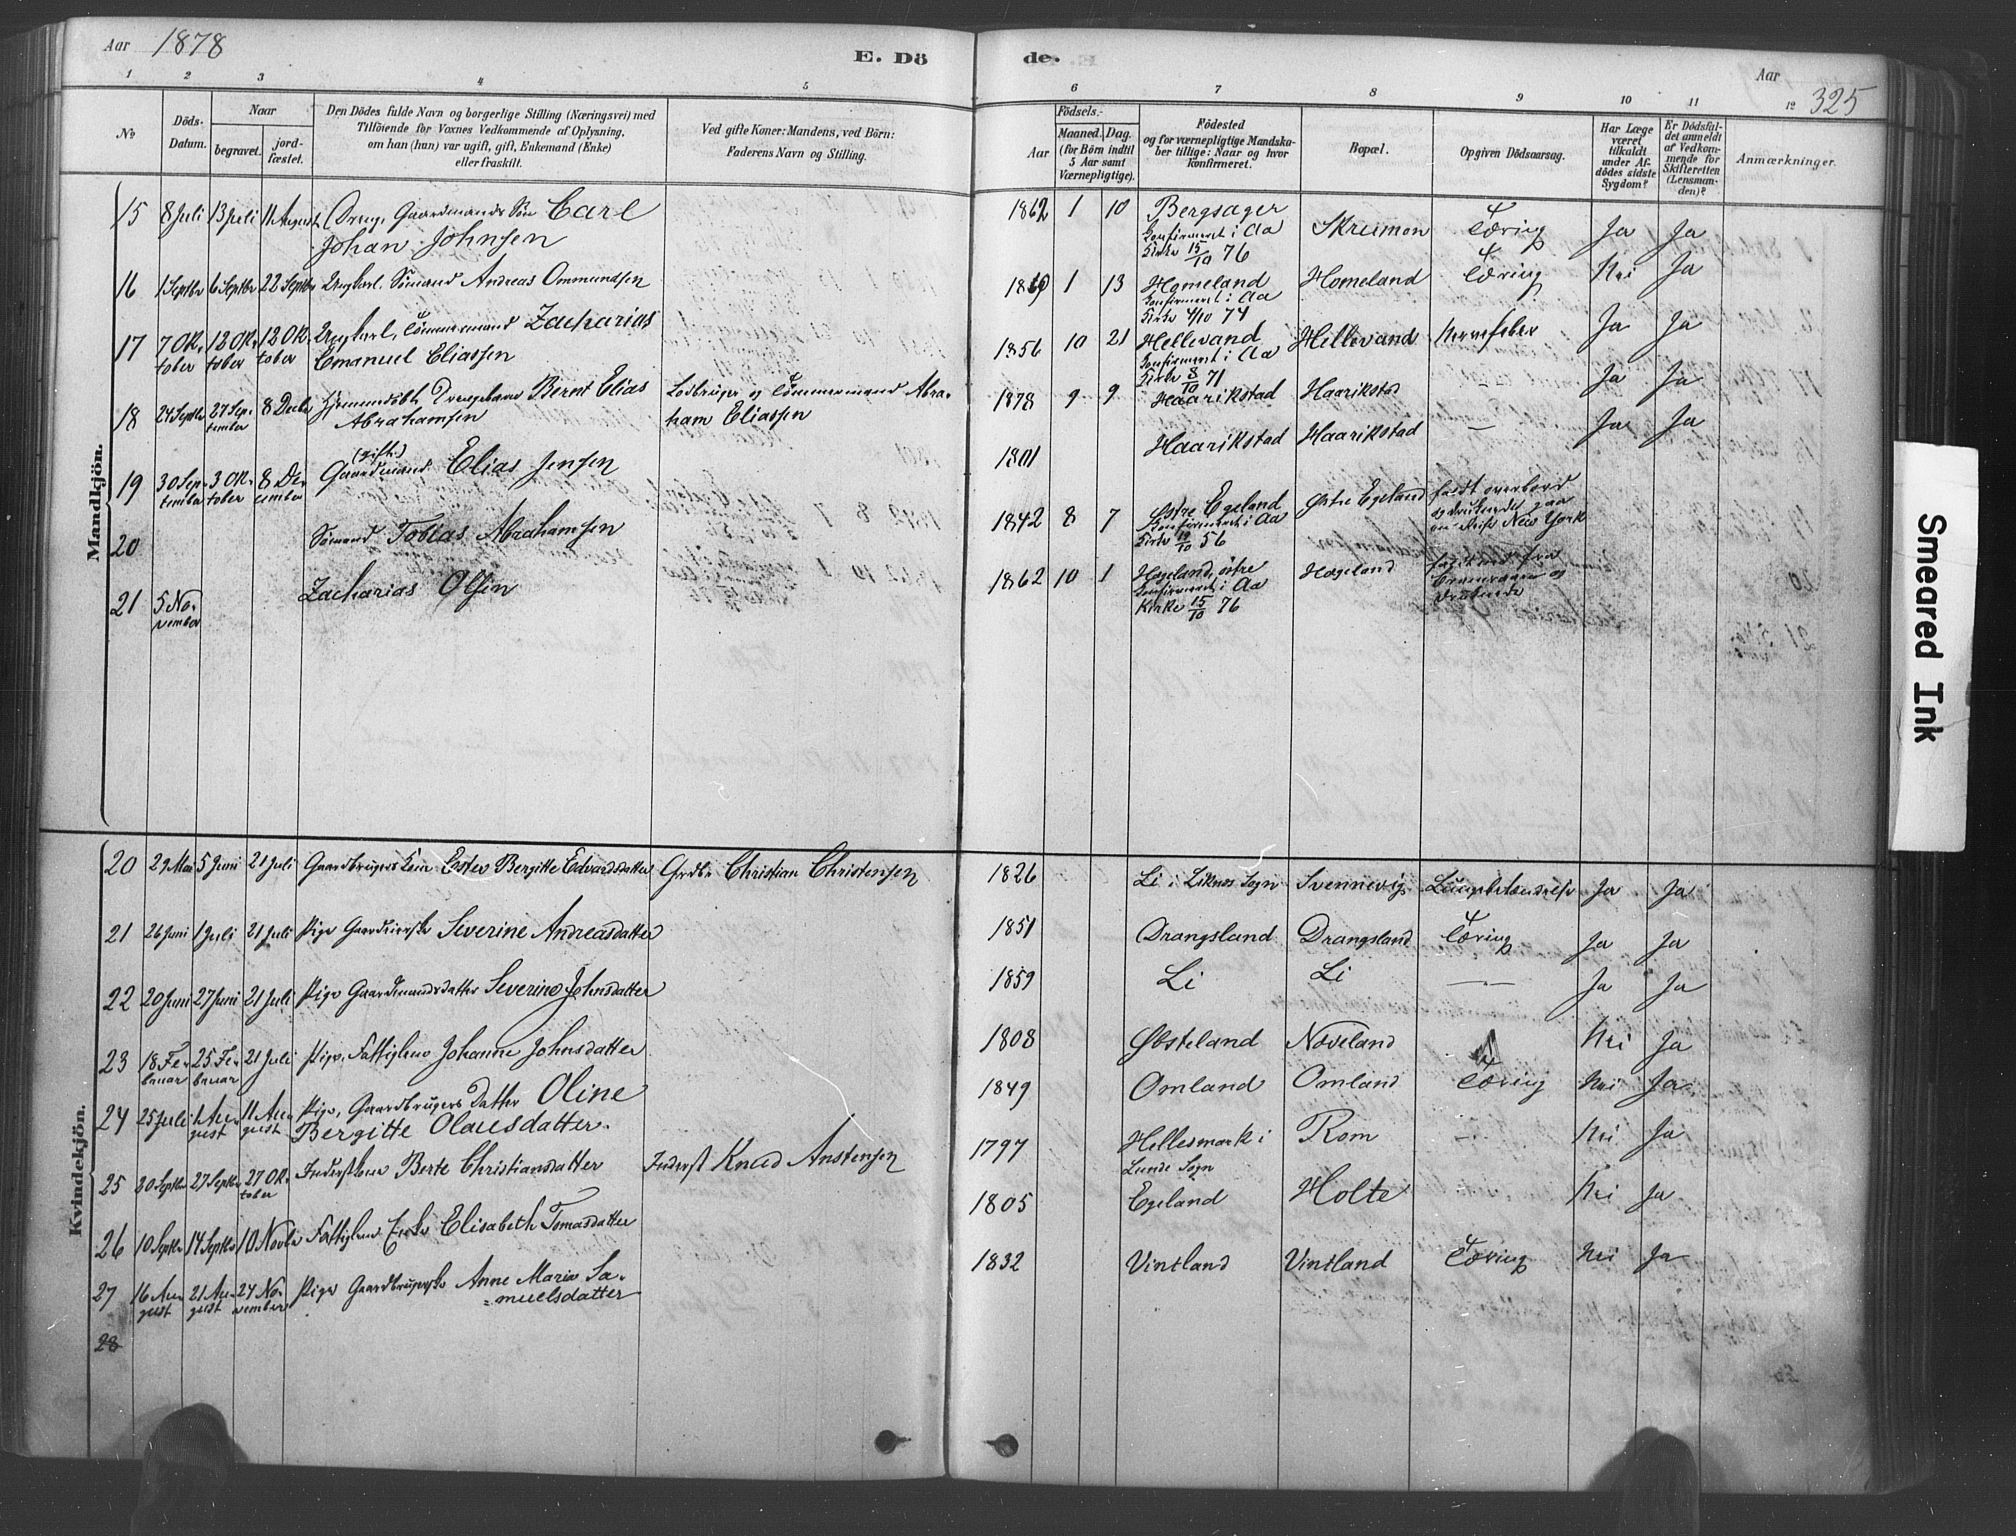 Aar 1878
E. Dö
de.
Aar
325
1 2 3 4 5 6 7 8 9 10 11 12
No
Döds-
Datum.
Naar
begravet.
jord-
fæstet.
Den Dödes fulde Navn og borgerlige Stilling (Næringsvei) med
Tilföiende for Voxnes Vedkommende af Oplysning,
om han (hun) var ugift, gift, Enkemand (Enke)
eller fraskilt.
Ved gifte Koner: Mandens, ved Börn:
Faderens Navn og Stilling.
Födsels-
Aar
Maaned. Dag.
(for Börn indtil
5 Aar samt
Værnepligtige).
Födested
og for værnepligtige Mandska-
ber tillige: Naar og hvor
konfirmeret.
Bopæl.
Opgiven Dödsaarsag.
Har Læge
været
tilkaldt
under Af-
dödes sidste
Sygdom?
Er Dödsfal-
det anmeldt
af Vedkom-
mende for
Skifteretten
(Lensman-
den)?
Anmærkninger.
Mandkjön.
15 8 Juli 13 Juli 11 August Dreng, Gaardmands Søn Carl
Johan Johnsen
1862 1 10 Bergsager
Konfirmeret i Aa
Kirke 15/10 76
Skreimon Tæring Ja Ja
16 1 Septbr 6 Septbr 22 Septbr Ungkarl. Sømand Andreas Ommundsen
1 13 Homeland
Konfirmeret i Aa
Kirke 4/10 74
Homeland Tæring Nei Ja
17 7 Ok-
tober 12 Ok-
tober 12 Ok-
tober Ungkarl, Tømmermand Zacharias
Emanuel Eliassen
1856 10 21 Hellevand
Konfirmeret i Aa
Kirke 8/10 71
Hellevand Nervefeber Ja Ja
18 24 Septbr 27 Sep-
tember 8 Decbr Hjemmedøbt Drengebarn Bernt Elias
Abrahamsen
Lodbruger og Tømmermand Abra-
ham Eliassen
1878 9 9 Haarikstad Haarikstad Ja Ja
19 30 Sep-
tember 3 Ok-
tober 8 De-
cember (gift)
Gaardmand Elias Jensen
1801 Haarikstad Haarikstad — Ja Ja
20 Sømand Tobias Abrahamsen
1842 8 7 Østre Egeland
Konfirmeret i Aa
Kirke 19/10 56
Østre Egeland faldt overbord
og druknede paa
en Reise New York
21 5 No-
vember Zacharias Olsen
1862 10 1 Hægeland, østre
Konfirmeret i Aa
Kirke 15/10 76
Hægeland
druknede
Kvindekjön.
20 29 Mai 5 Juni 21 Juli Gaardbrugers Kone Ester Bergitte Edvardsdatter Grdbr Christian Christensen
1826 Li i Liknes Sogn Svennevig Ja Ja
21 26 Juni 1 Juli 21 Juli Pige Severine Andreasdatter
1851 Drangsland Drangsland Tæring Ja Ja
22 20 Juni 27 Juni 21 Juli Pige Gaardmandsdatter Severine Johnsdatter
1859 Li Li — Ja Ja
23 18 Fe-
bruar 25 Fe-
bruar 21 Juli Pige, Fattiglem Johanne Johnsdatter
1808 Øbsteland Næveland Nei Ja
24 25 Juli 1 Au-
gust 11 Au-
gust Pige, Gaardbrugers Datter Oline
Bergitte Olausdatter.
1849 Omland Omland Tæring Nei Ja
25 20 Septbr 27 Septbr 27 Ok-
tober Inderstkone Berte Christiansdatter Inderst Knud Anstensen
1797 Hellesmark i
Lunde Sogn
Rom — Nei Ja
26 10 Septbr 14 Septbr 10 Novbr Fattiglem Enke Elisabeth Tomasdatter
1805 Egeland Holte Nei Ja
27 16 Au-
gust 21 Au-
gust 24 No-
vember Pige Anne Marie Sa-
muelsdatter
1832 Vintland Vintland Tæring Nei Ja
28
Smeared Ink